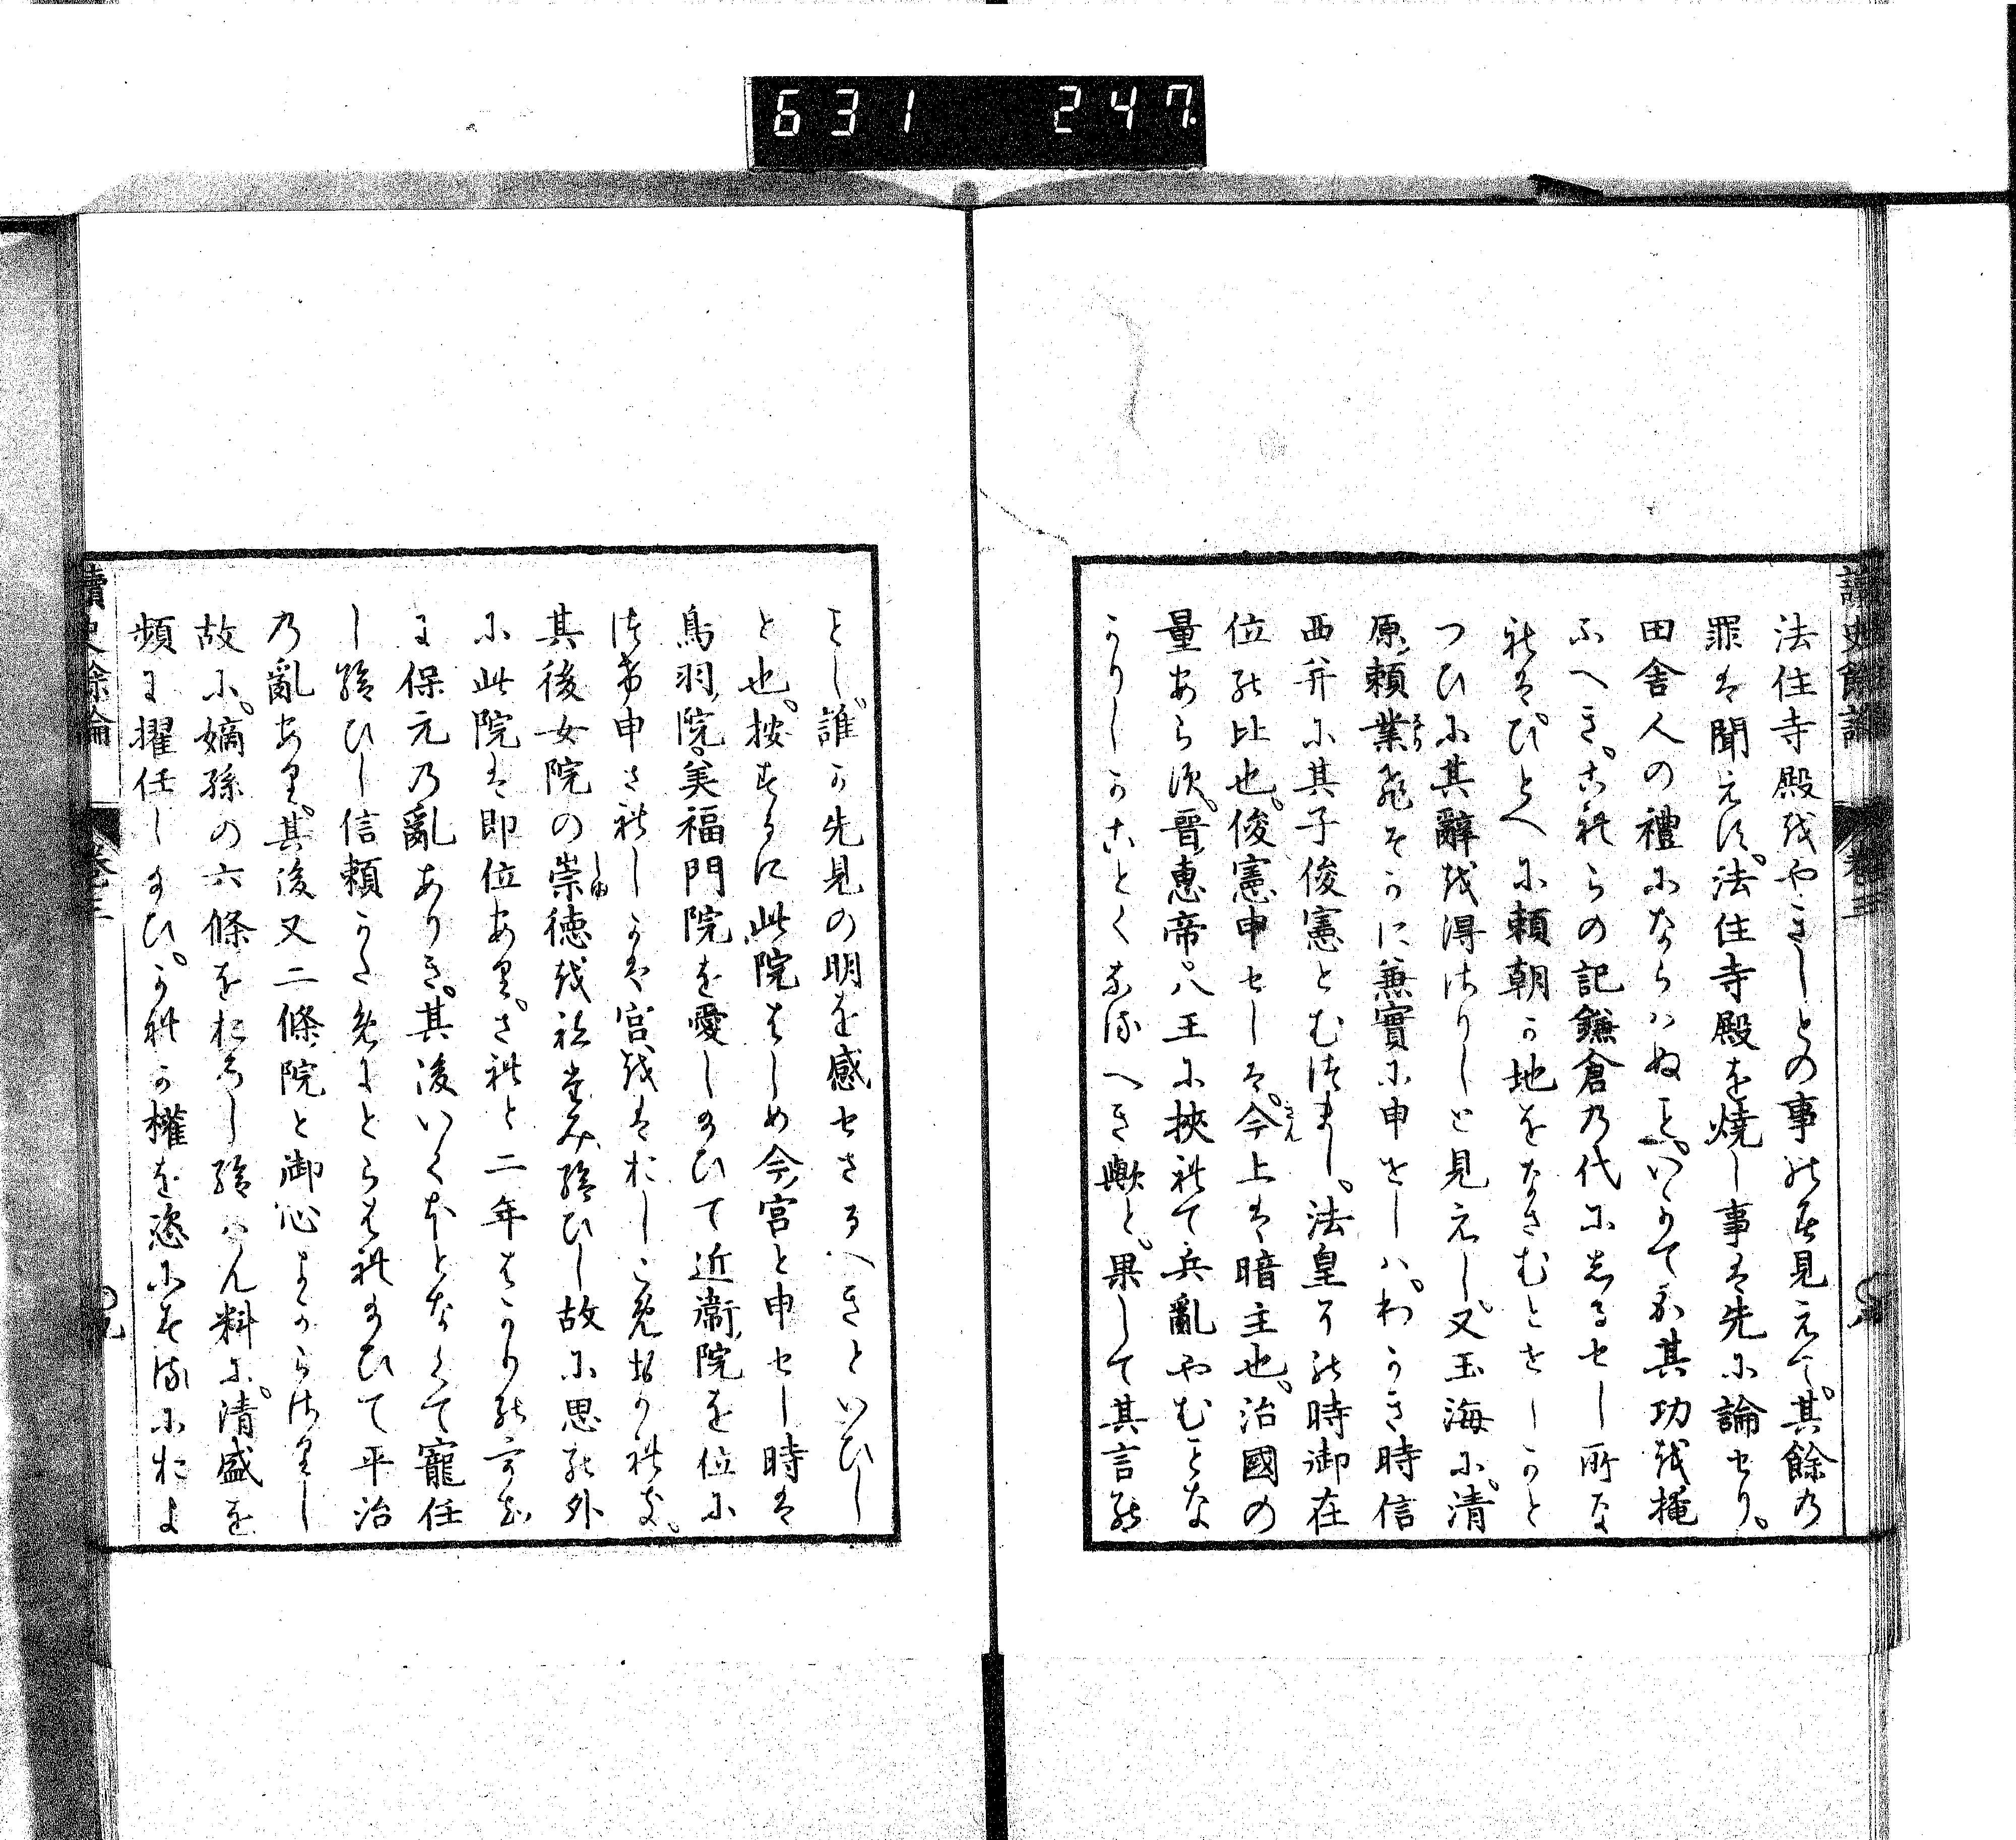 631 247.
讀史餘論 卷三
法住寺殿をやきしとの事のみ見えて。其餘の
罪は聞えす。法住寺殿を燒し事は先に論せり。
田舍人の禮にならはぬこと。いかてか其功を掩
ふへき。これらの記鎌倉の代にしるせし所な
れは。ひとへに頼朝か地をなさむとせしかと
つひに其辭を得さりしと見えし。又玉海に。清
原頼業ひそかに兼實に申せしは。わかき時信
西并に其子俊憲とむつまし。法皇その時御在
位の比也。俊憲申せしは。今上は暗主也。治國の
量あらす。晋惠帝。八王に挾れて兵亂やむことな
かりしかことくなるへき歟と。果して其言の
ことし。誰か先見の明を感せさるへきといひし
と也。按するに此院はしめ今宮と申せし時は
鳥羽院。美福門院を愛し給ひて近衞院を位に
つけ申されしかは宮をはおしこめおかれき。
其後女院の崇徳を祖み給ひし故に思の外
に此院は即位あり。されと二年はかりの内に
に保元の亂ありき。其後いくほとなくて寵任
し給ひし信頼かためにとらはれ給ひて平治
の亂あり。其後又二條院と御心よからさりし
故に。嫡孫の六條をおろし給はん料に。清盛を
頻に擢任し給ひ。かれか權を恣にするにおよ
讀史餘論 卷三